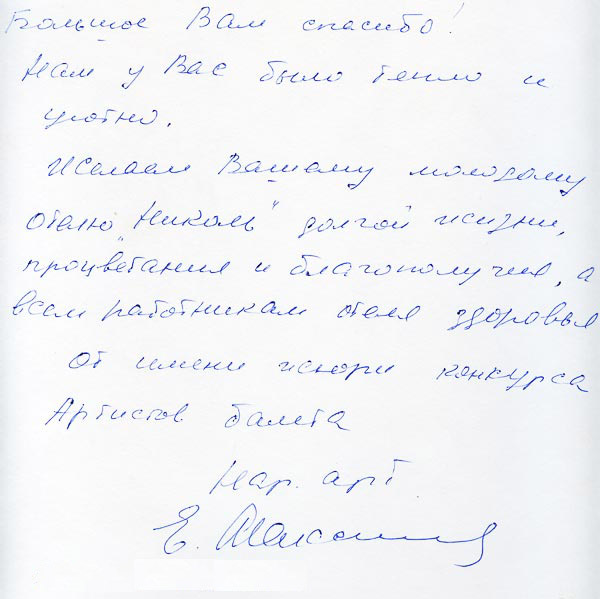 Большое Вам спасибо!
Нам у Вас было тепло и
уютно.
Желаем Вашему молодому
отелю „Николь" долгой жизни,
процветания и благополучия, а
всем работникам отеля здоровья
От имени жюри конкурса
Артистов балета
Нар. арт.
Е. Максимова